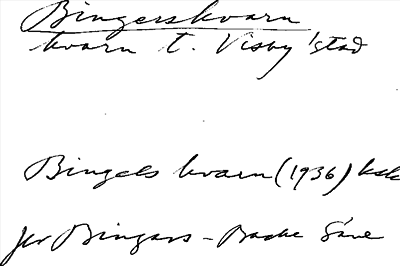 Bingerskvarn
kvarn t. Visby stad
Bingels kvarn (1936)
Jfr Bingers - Backe